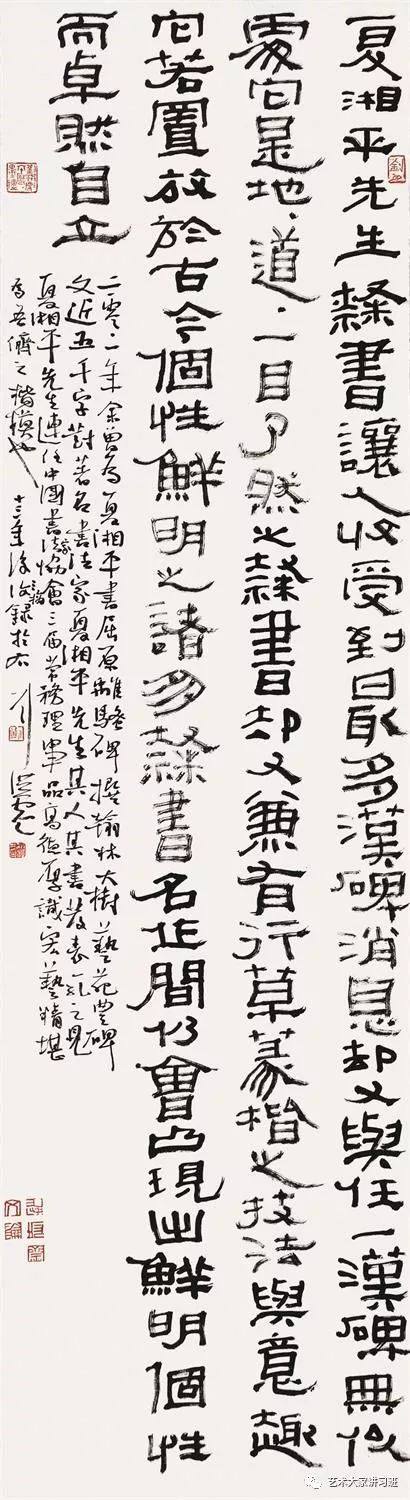 夏湘平先生隸書讓人收受到最多漢碑消息却又與任一漢碑無似
處它是地、道、一目了然之隸書却又兼有行草篆楷之技法與意趣
它若置放於古今個性鮮明之諸多隸書名作間仍會凸現出鮮明個性
而卓然自立
二零一二年余曾為夏湘平書屈原離騷碑撰翰林大樹藝苑豐碑
文近五千字對著名書法家夏湘平先生其人其書發表一孔之見
夏湘平先生連任中國書法家協會三届常務理事品高德厚識宏藝精堪
為吾儕之楷模也 錄於右 劉洪彪
艺术大家讲习班